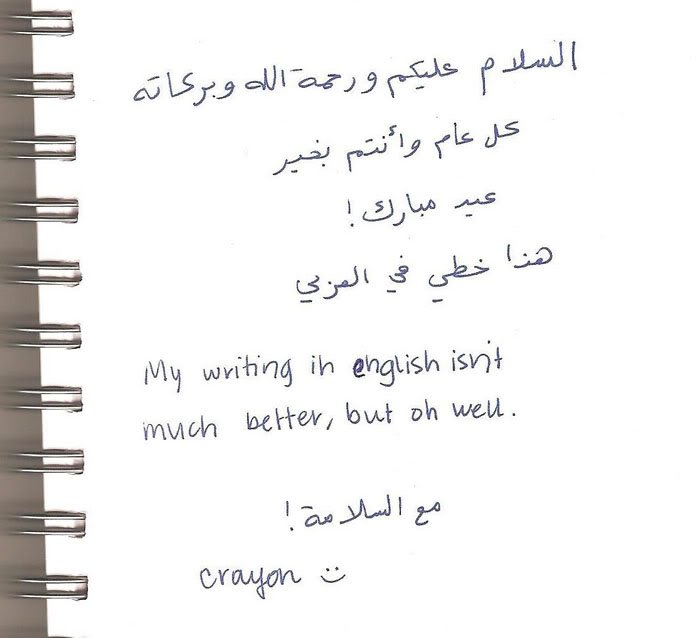 السلام عليكم ورحمة الله وبركاته
كل عام وأنتم بخير
عيد مبارك!
هذا خطي في العربي
My writing in english isn't
much better, but oh well.
مع السلامة!
crayon :)